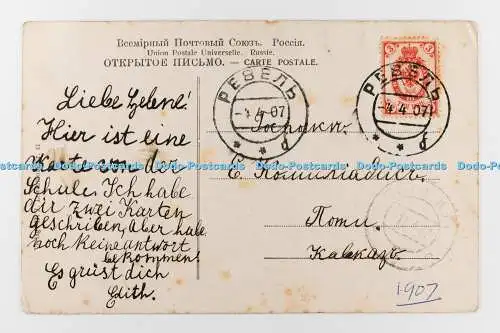 Всемірный Почтовый Союзъ. Россія.
Union Postale Universelle. Russie.
ОТКРЫТОЕ ПИСЬМО. — CARTE POSTALE.
Liebe Helene!
Hier ist eine
Karte von der
Schule. Ich habe
dir zwei Karten
geschrieben, Aber habe
noch keine antwort
bekommen!
Es grüst dich
Edith.
РЕВЕЛЬ
-4 4 07
РЕВЕЛЬ
-4 4 07
3
3
Поти.
Кавказъ.
1907
Dodo-Postcards Dodo-Postcards Dodo-Postcards Dodo-Postcards